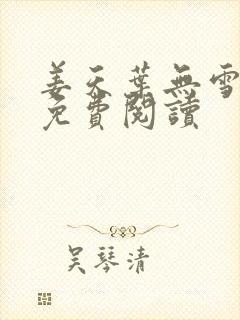 姜天葉無雪
免費閱讀
吴琴清